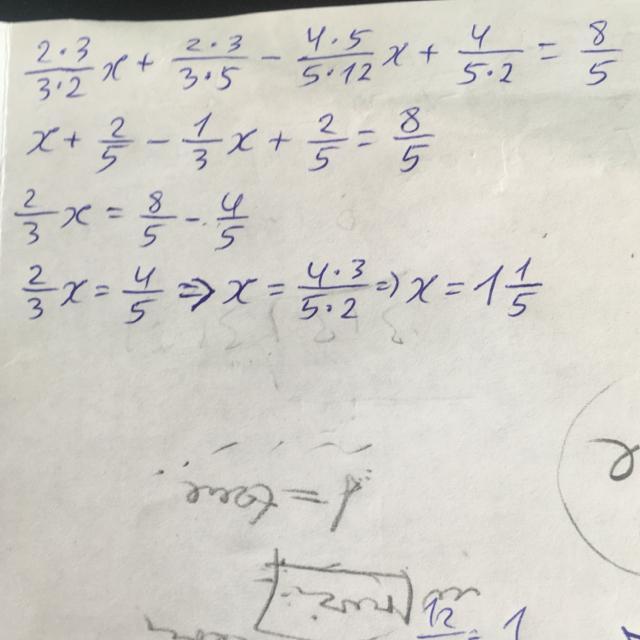 \frac{2·3}{3·2}x + \frac{2·3}{3·5} - \frac{4·5}{5·12}x + \frac{4}{5·2} = \frac{8}{5}
x + \frac{2}{5} - \frac{1}{3}x + \frac{2}{5} = \frac{8}{5}
\frac{2}{3}x = \frac{8}{5} - \frac{4}{5}
\frac{2}{3}x = \frac{4}{5} => x = \frac{4·3}{5·2} => x = 1\frac{1}{5}
12 = 1